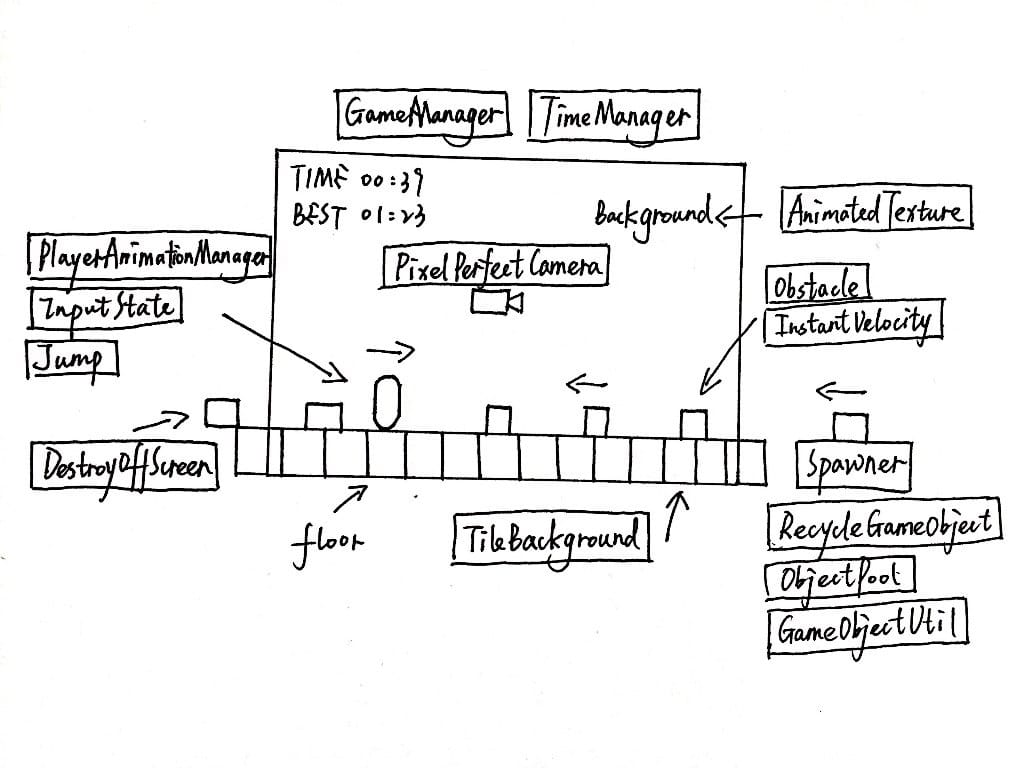 GameManager
TimeManager
TIME 00:39
BEST 01:23
Background
AnimatedTexture
PlayerAnimationManager
PixelPerfectCamera
InputState
Jump
Obstacle
InstantVelocity
DestroyOffScreen
Spawner
floor
TileBackground
RecycleGameObject
ObjectPool
GameObjectUtil